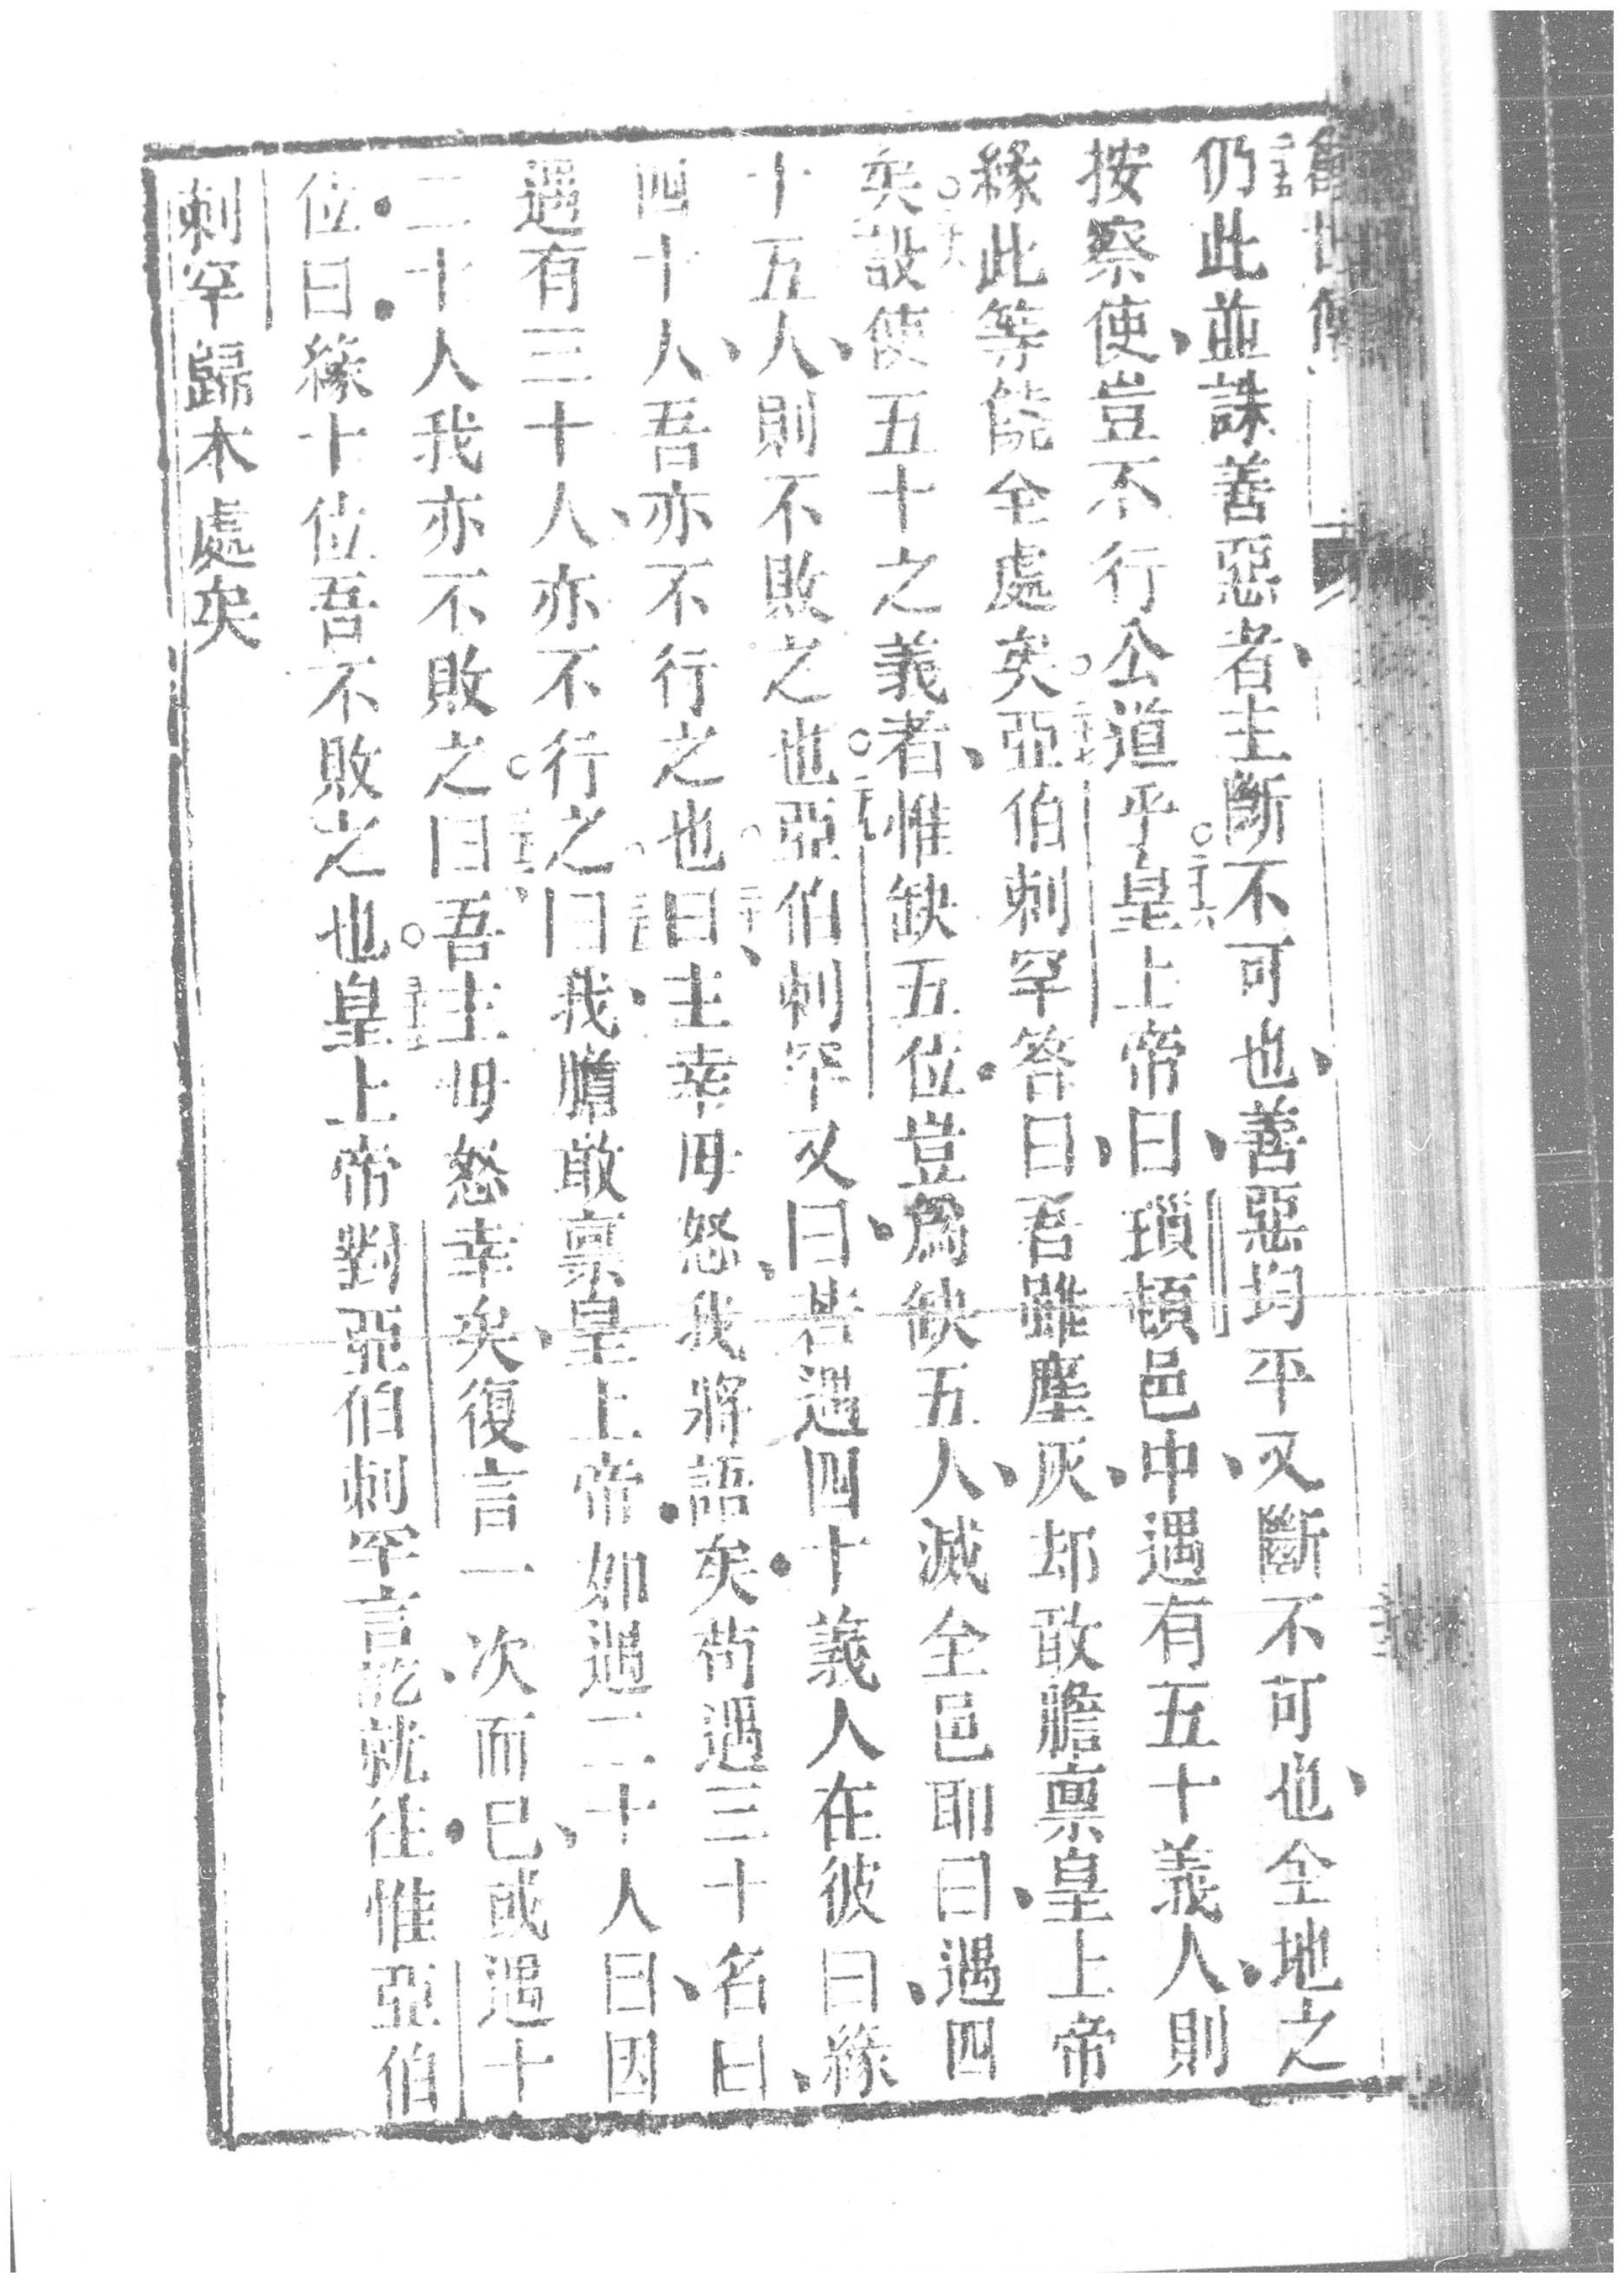 仍此並誅善惡者、主斷不可也、善惡均平、又斷不可也、全地之
按察使、豈不行公道乎。皇上帝曰、瑣頓邑中、遇有五十義人、則
緣此等能全處矣。亞伯刺罕答曰、吾雖塵灰、却敢膽禀皇上帝
矣。設使五十之義者、惟缺五位、豈爲缺五人、滅全邑耶、曰、遇四
十五人、則不敗之也。亞伯刺罕又曰、若遇四十義人在彼、曰、緣
四十人、吾亦不行之也。曰、主幸毋怒、我將語矣、苟遇三十名、曰、
遇有三十人、亦不行之。曰、我膽敢禀皇上帝、如遇二十人、曰、因
二十人、我亦不敗之。曰、吾主毋怒幸矣、復言一次而已、或遇十
位、曰、緣十位、吾不敗之也。皇上帝對亞伯刺罕言訖、就往、惟亞伯
刺罕歸本處矣